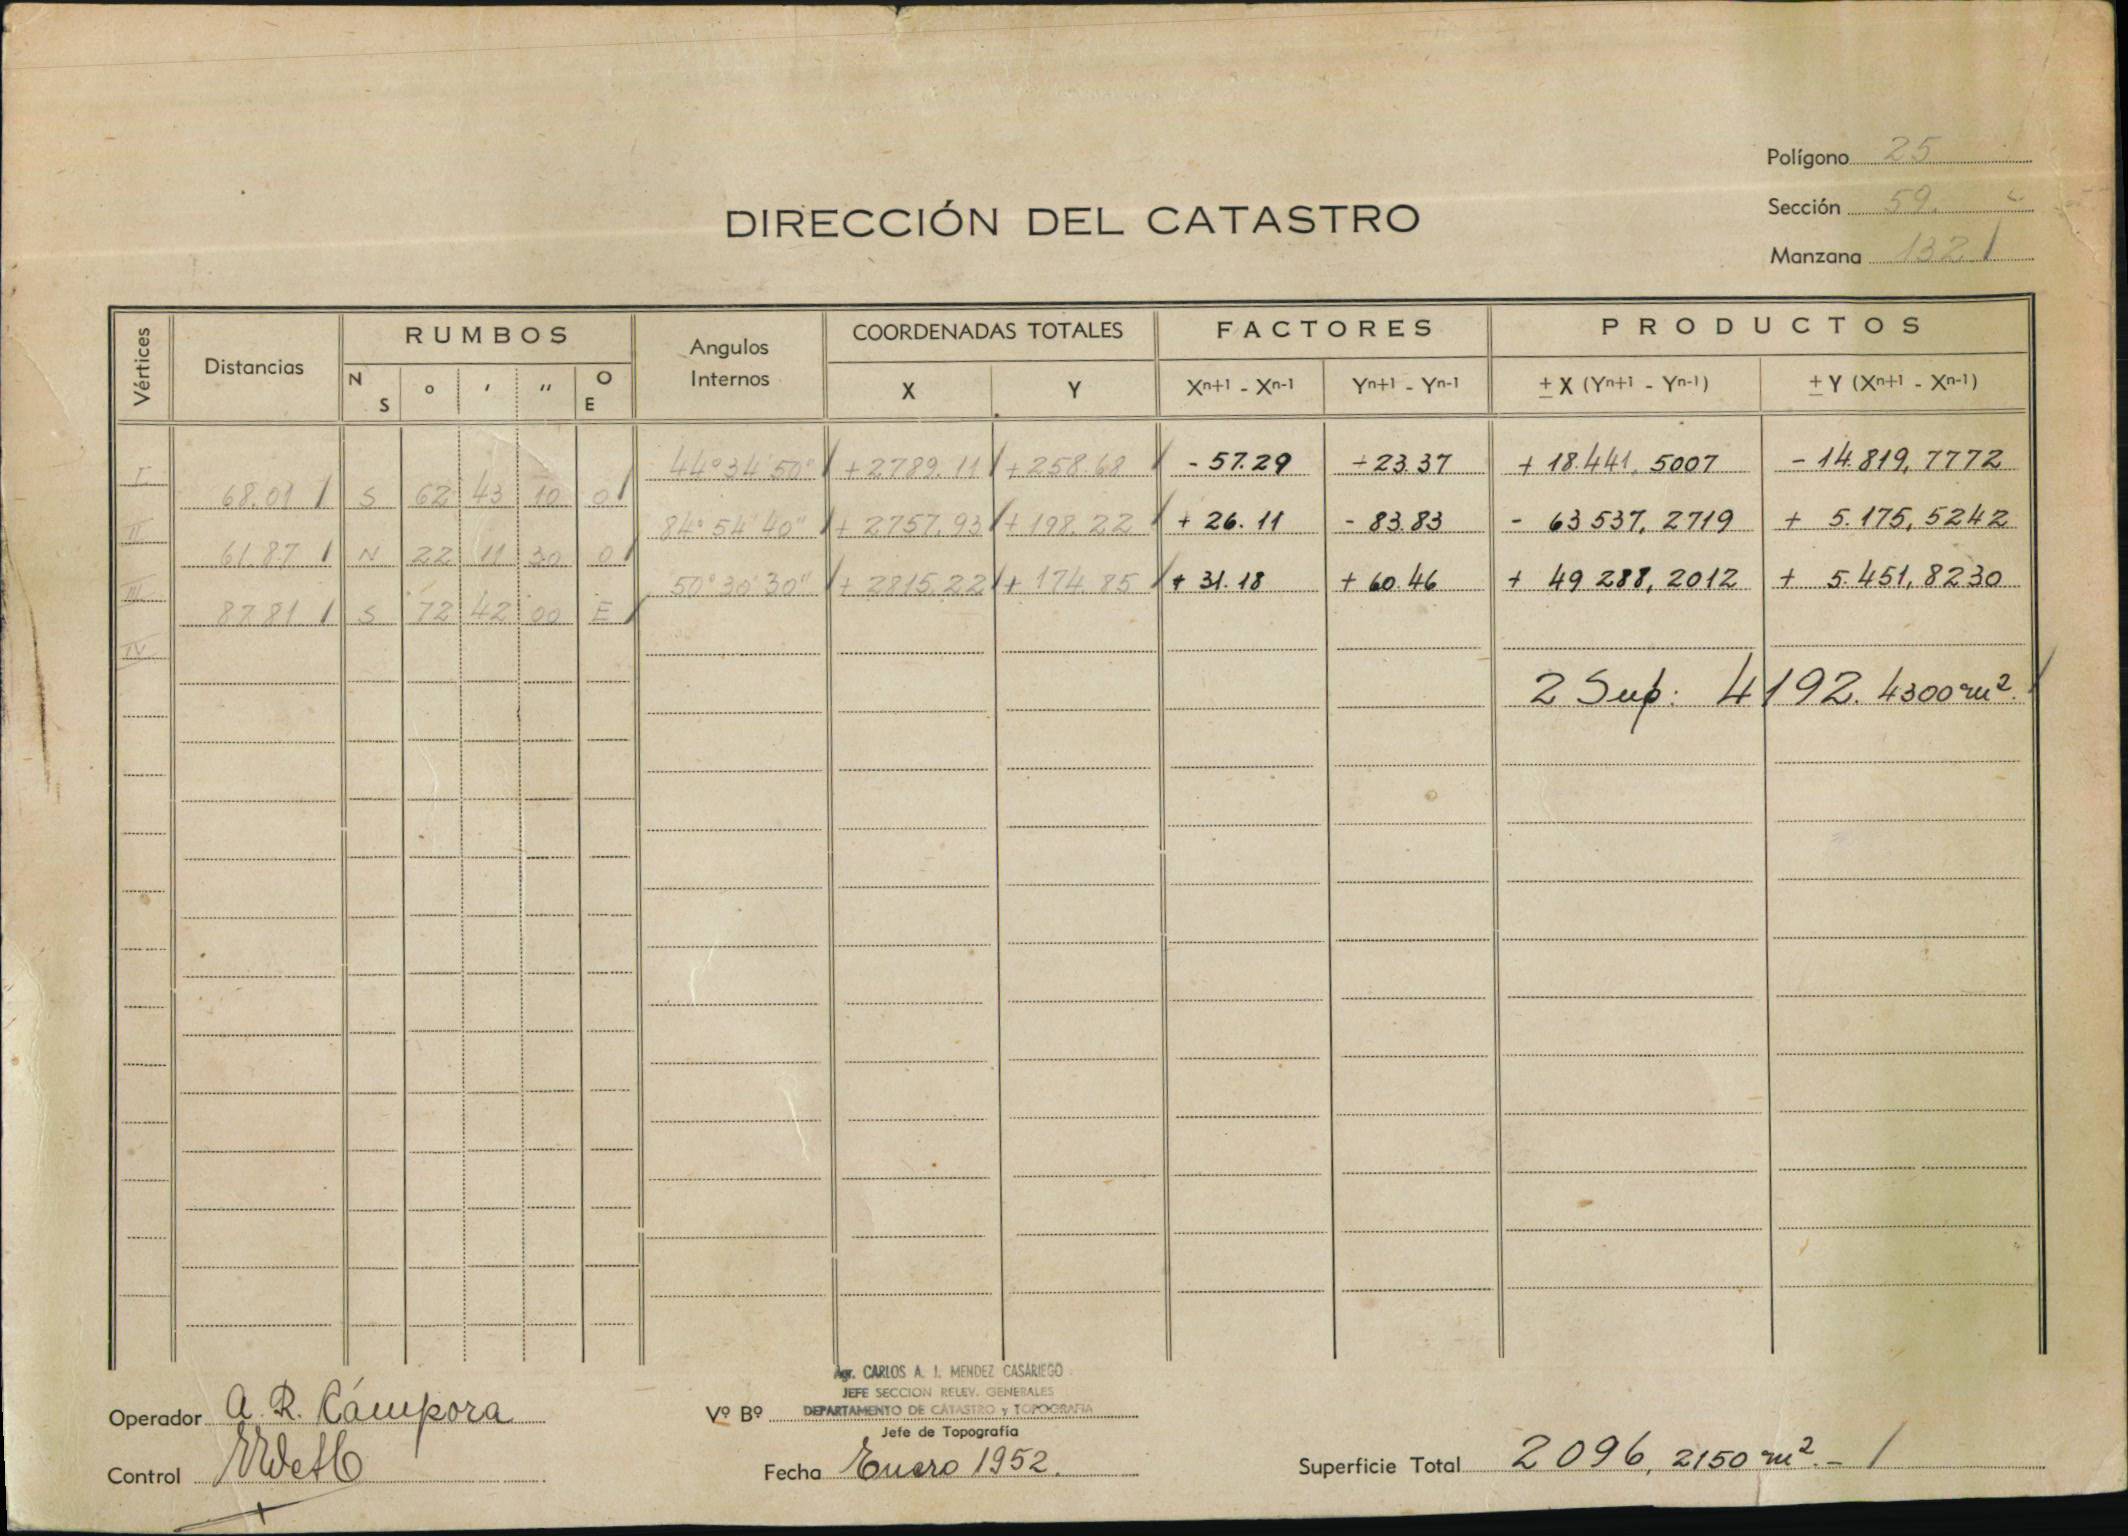 Polígono 25
Sección 59.
Manzana 132
DIRECCIÓN DEL CATASTRO
Vértices Distancias RUMBOS Angulos Internos COORDENADAS TOTALES FACTORES PRODUCTOS
N S ° ' " O E X Y Xn+1 - Xn-1 Yn+1 - Yn-1 ± X (Yn+1 - Yn-1) ± Y (Xn+1 - Xn-1)
I 44°34'50" +2789.11 +258.68 -57.29 +23.37 +18.441,5007 -14.819,7772
68.01 S 62 43 10 O
II 84°54'40" +2757.93 +198.22 +26.11 -83.83 -63537,2719 +5.175,5242
61.87 N 22 11 30 O
III 50°30'30" +2815.22 +174.85 +31.18 +60.46 +49288,2012 +5.451,8230
87.81 S 72 42 00 E
IV
2 Sup: 4192.4300 m².
Agr. CARLOS A. J. MENDEZ CASARIEGO
JEFE SECCION RELEV. GENERALES
Operador A. R. Cámpora Vº Bº DEPARTAMENTO DE CATASTRO y TOPOGRAFIA
Jefe de Topografía
Control Fecha Enero 1952. Superficie Total 2096,2150 m².-